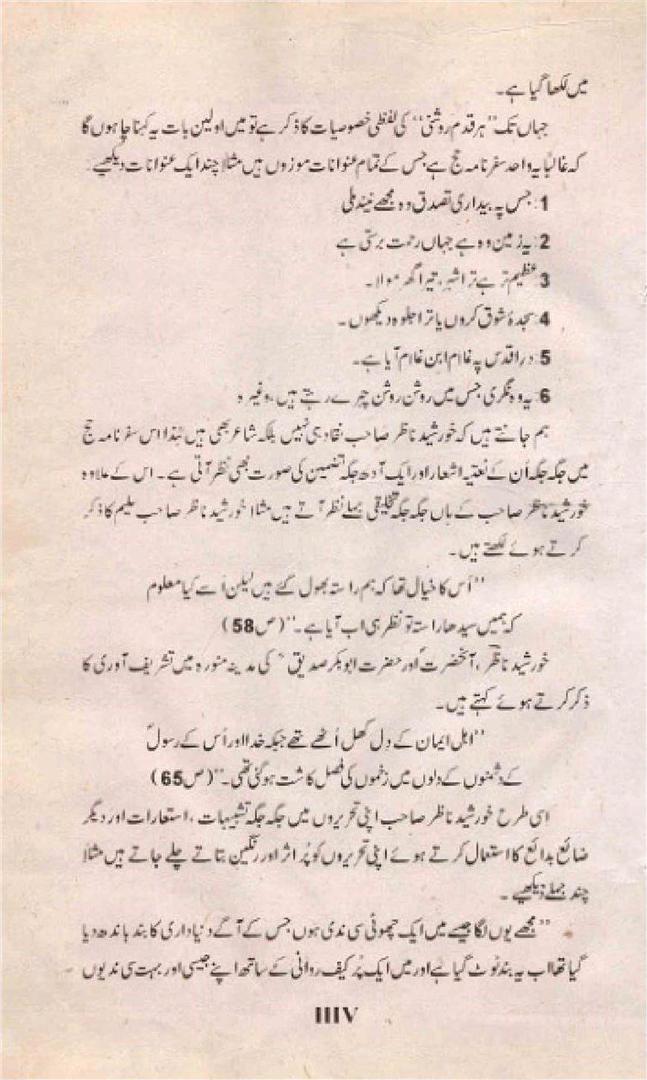 میں لکھا گیا ہے۔
جہاں تک ’’ہر قدم روشنی‘‘ کی لفظی خصوصیات کا ذکر ہے تو میں اولین بات یہ کہنا چاہوں گا
کہ غالباً یہ واحد سفر نامہ حج ہے جس کے تمام عنوانات موزوں ہیں مثلاً چند ایک عنوانات دیکھیے
1: جس پہ بیداری تصدق وہ مجھے نیند ملی
2: یہ زمین وہ ہے جہاں رحمت برستی ہے
3: عظیم تر ہے ترا شہر، تیرا گھر مولا۔
4: سجدۂ شوق کروں یا ترا جلوہ دیکھوں۔
5: در اقدس پہ غلام ابن غلام آیا ہے۔
6: یہ وہ نگری جس میں روشن روشن چہرے رہتے ہیں، وغیرہ
ہم جانتے ہیں کہ خورشید ناظر صاحب نقاد ہی نہیں بلکہ شاعر بھی ہیں لہٰذا اس سفر نامہ حج
میں جگہ جگہ اُن کے نعتیہ اشعار اور ایک آدھ جگہ تضمین کی صورت بھی نظر آتی ہے۔ اس کے علاوہ
خورشید ناظر صاحب کے ہاں جگہ جگہ تخلیقی جملے نظر آتے ہیں مثلاً خورشید ناظر صاحب ملیم کا ذکر
کرتے ہوئے لکھتے ہیں۔
’’اُس کا خیال تھا کہ ہم راستہ بھول گئے ہیں لیکن اُسے کیا معلوم
کہ ہمیں سیدھا راستہ تو نظر ہی اب آیا ہے۔‘‘ (ص 58)
خورشید ناظر، آنحضرتؐ اور حضرت ابوبکر صدیقؓ کی مدینہ منورہ میں تشریف آوری کا
ذکر کرتے ہوئے کہتے ہیں۔
’’اہل ایمان کے دل کھل اُٹھے تھے جبکہ خدا اور اُس کے رسولؐ
کے دشمنوں کے دلوں میں زخموں کی فصل کاشت ہو گئی تھی۔‘‘ (ص 65)
اسی طرح خورشید ناظر صاحب اپنی تحریروں میں جگہ جگہ تشبیہات، استعارات اور دیگر
ضائع بدائع کا استعمال کرتے ہوئے اپنی تحریروں کو پُر اثر اور رنگین بتاتے چلے جاتے ہیں مثلاً
چند جملے دیکھیے۔
’’مجھے یوں لگا جیسے میں ایک چھوٹی سی ندی ہوں جس کے آگے دنیا داری کا بند باندھ دیا
گیا تھا اب یہ بند ٹوٹ گیا ہے اور میں ایک پُر کیف روانی کے ساتھ اپنے جیسی اور بہت سی ندیوں
IIIV